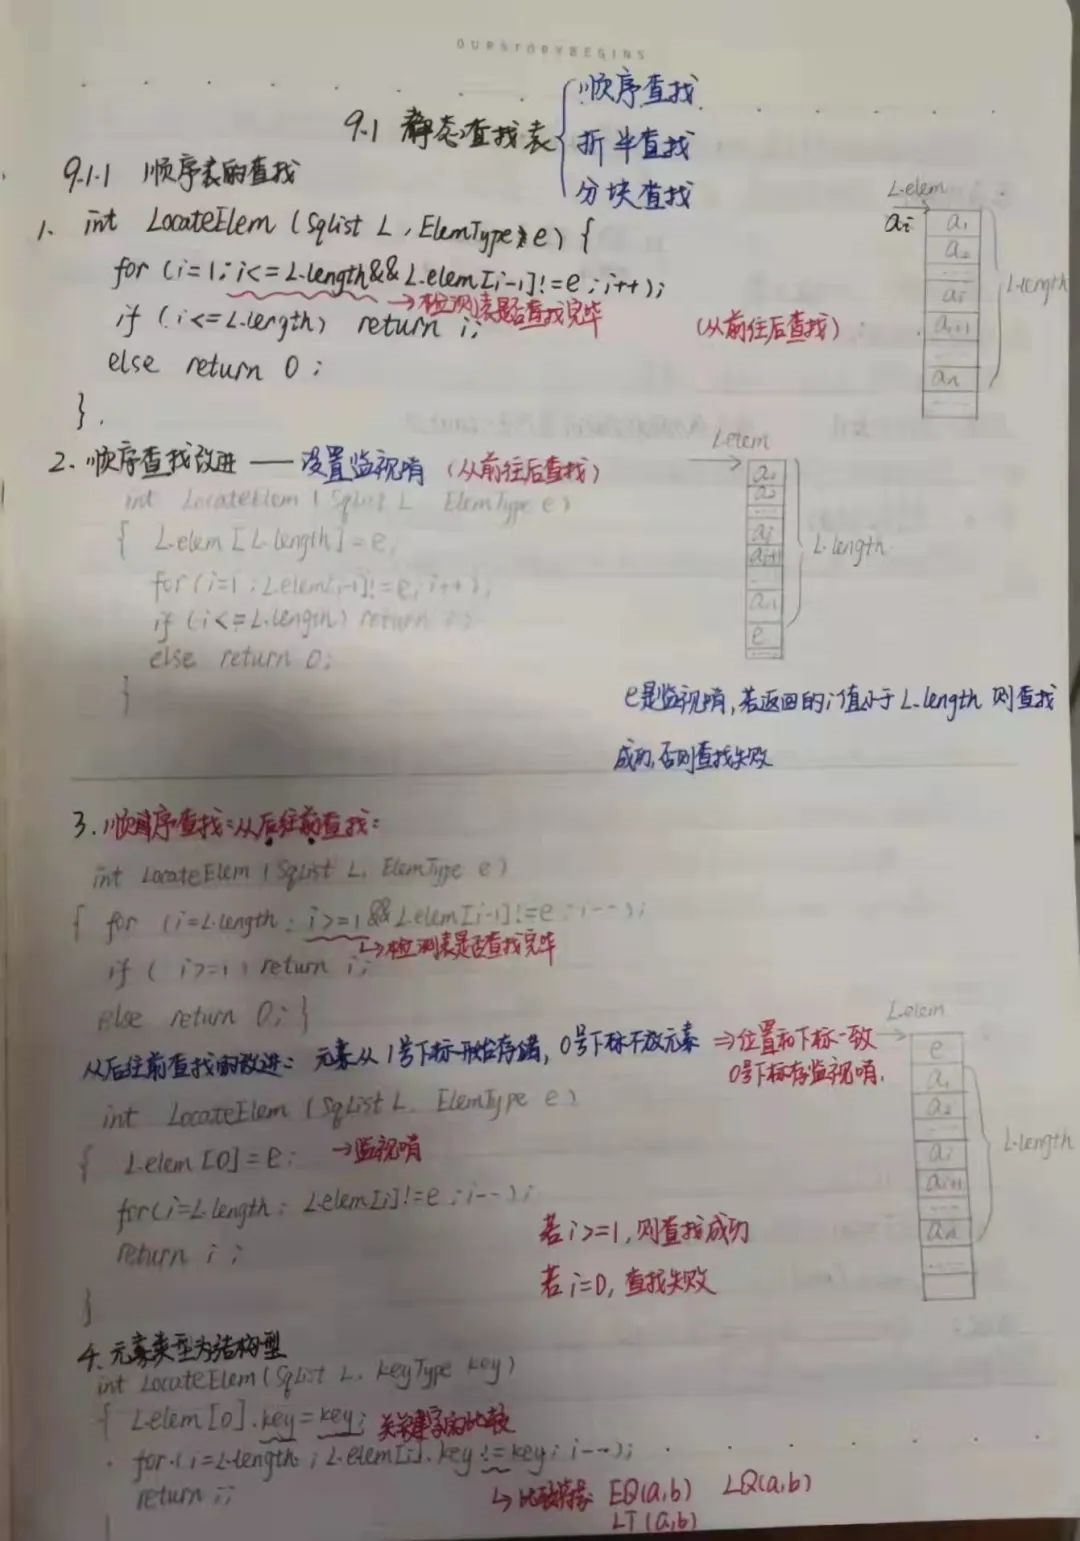 OURSTORYBEGINS
9.1 静态查找表
顺序查找
折半查找
分块查找
9.1.1 顺序表的查找
1. int LocateElem (SqList L, ElemType e) {
for (i=1; i<=L.length&&L.elem[i-1]!=e; i++);
→检测表是否查找完毕
if (i<=L.length) return i;
(从前往后查找)
else return 0;
}
L.elem
ai
a1
a2
...
ai
ai+1
...
an
...
L.length
2. 顺序查找改进 —— 设置监视哨 (从前往后查找)
int LocateElem (SqList L ElemType e)
{ L.elem[L.length]=e;
for(i=1; L.elem[i-1]!=e; i++);
if (i<=L.length) return i;
else return 0;
}
L.elem
a1
a2
...
ai
ai+1
...
an
e
...
L.length
e是监视哨,若返回的i值小于L.length 则查找
成功,否则查找失败
3. 顺序查找:从后往前查找:
int LocateElem (SqList L, ElemType e)
{ for (i=L.length; i>=1&&L.elem[i-1]!=e; i--);
→检测表是否查找完毕
if (i>=1) return i;
else return 0; }
从后往前查找的改进: 元素从1号下标开始存储, 0号下标不放元素 ⇒位置和下标一致
0号下标存监视哨.
int LocateElem (SqList L, ElemType e)
{ L.elem[0]=e; →监视哨
for(i=L.length; L.elem[i]!=e; i--);
return i;
}
若i>=1,则查找成功
若i=0, 查找失败
L.elem
e
a1
a2
...
ai
ai+1
...
an
...
L.length
4. 元素类型为结构型
int LocateElem(SqList L, KeyType key)
{ L.elem[0].key=key; 关键字的比较
for(i=L.length; L.elem[i].key!=key; i--);
return i;
↳ EQ(a,b) LQ(a,b)
LT(a,b)